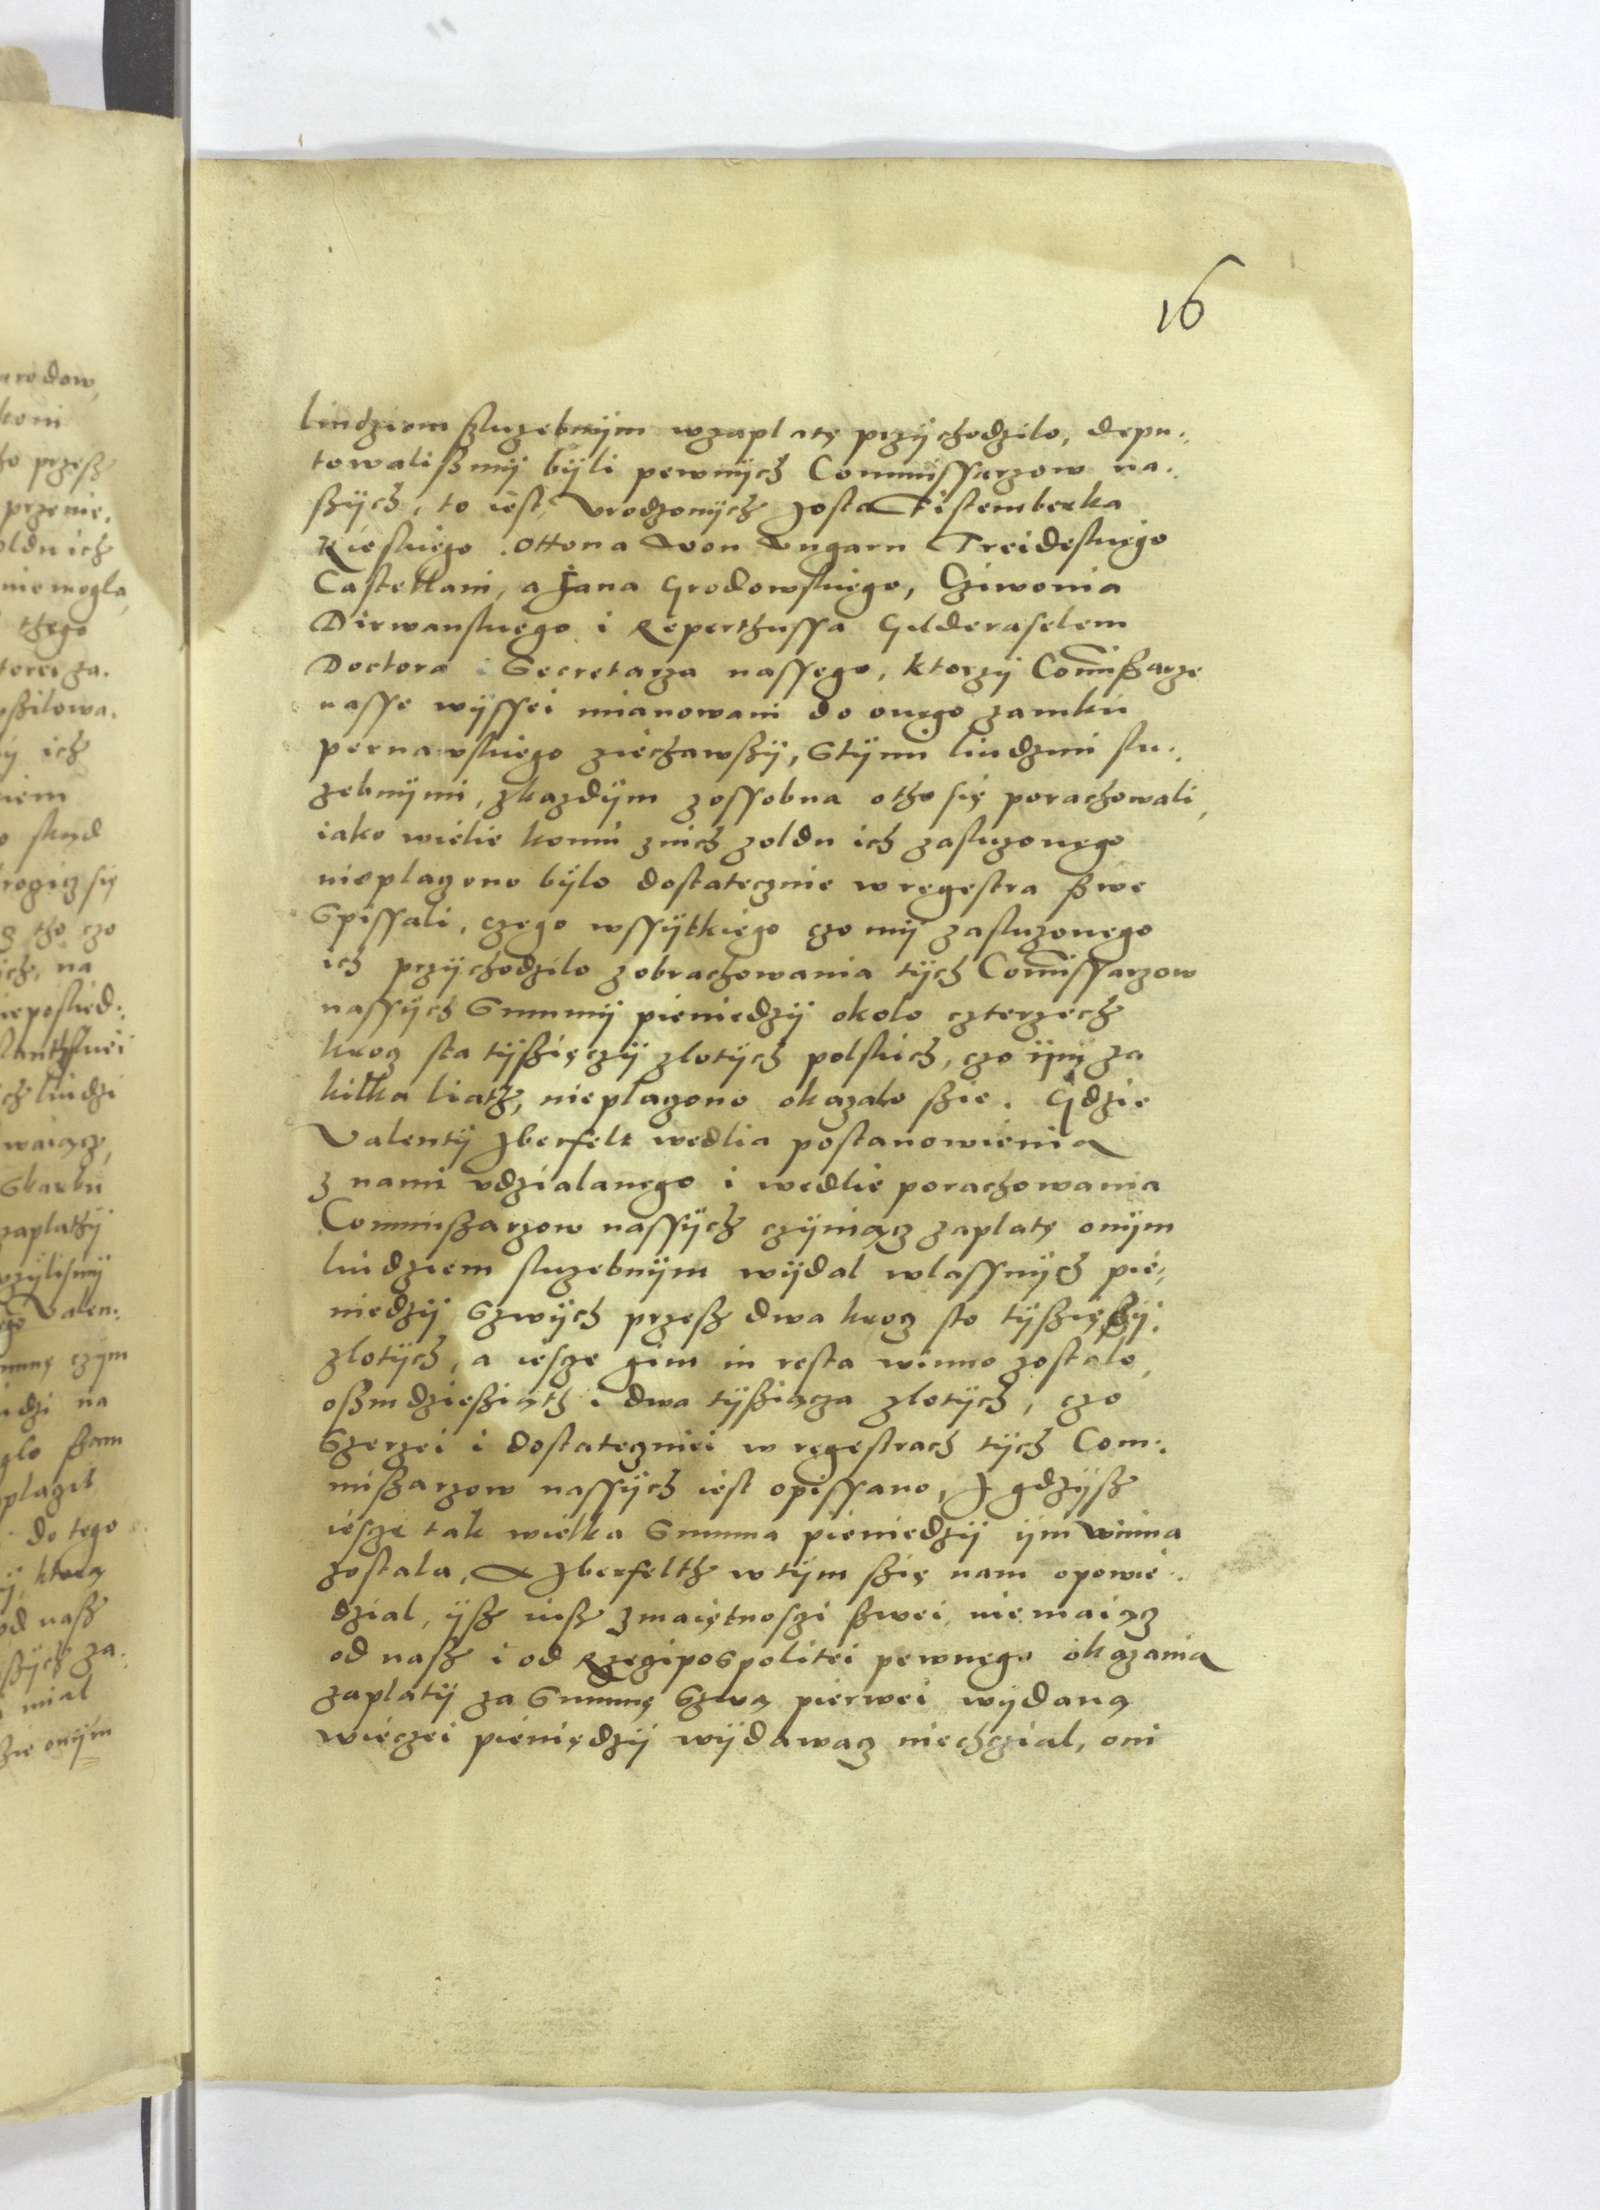 16
liudziom sluzebnÿm wzaplatę przÿchodzilo, depu:,
towalißmÿ bÿli pewnÿch Commissarzow na:,
ßÿch, to iest, Vrodzonÿch Josta Fistemberka
Kieskiego. Ottona Von Vngarn Treideskiego
Castellani, a Jana Grodowskiego,
Dirwanskiego i Reperthussa Gilderaselem
Doctora i Secretarza nassego, ktorzÿ Com̃ißarze
nasse wÿssei mianowani do onego zamku
pernawskiego ziechawßÿ, Stÿmi liudzmi slu:,
zebnÿmi, zkazdÿm zossobna otho się porachowali,
iako wielie komu znich zoldu ich zasluzonego
nieplazono bÿlo dostatecznie w regestra ßwe
Spissali, czego wssÿtkiego czo mÿ zasluzonego
ich przÿchodzilo zobrachowania tÿch Com̃issarzow
nassÿch Summÿ pieniedzÿ okolo czterzech
krocz sta tÿßięczÿ zlotÿch polskich, czo ÿm za
kilka liath, nieplazono okazalo ßie. Gdzie
Valentÿ Jberfelt wedlia postanowienia
z nami vdzialanego i wedlie porachowania
Commißarzow nassÿch czÿniącz zaplatę onÿm
liudziem sluzebnÿm wÿdal wlassnÿch pie:,
niedzÿ Szwÿch przeß dwa krocz sto tÿßięczÿ
zlotÿch, a iesze gim in resta winno zostalo,
oßmdzießiąth i dwa tÿßiącza zlotÿch, czo
Szerzei i dostateczniei w regestrach tÿch Com:,
mißarzow nassÿch iest opissano, J gdzÿß
iesze tak wielka Summa pieniedzÿ ÿm winna
zostala, A Jberfelth w tÿm ßię nam opowie:,
dzial, ÿß iuß zmaiętnoszi ßwei niemaiącz
od naß i od Rzeczipospolitei pewnego okazania
zaplatÿ za Summę Szwą pierwei wÿdaną
wieczei pieniędzÿ wÿdawacz niechczial, oni